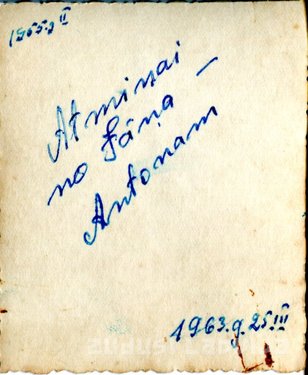 1955.g II
Atmiņai
no Jāņa –
Antonam
1963.g. 25.III